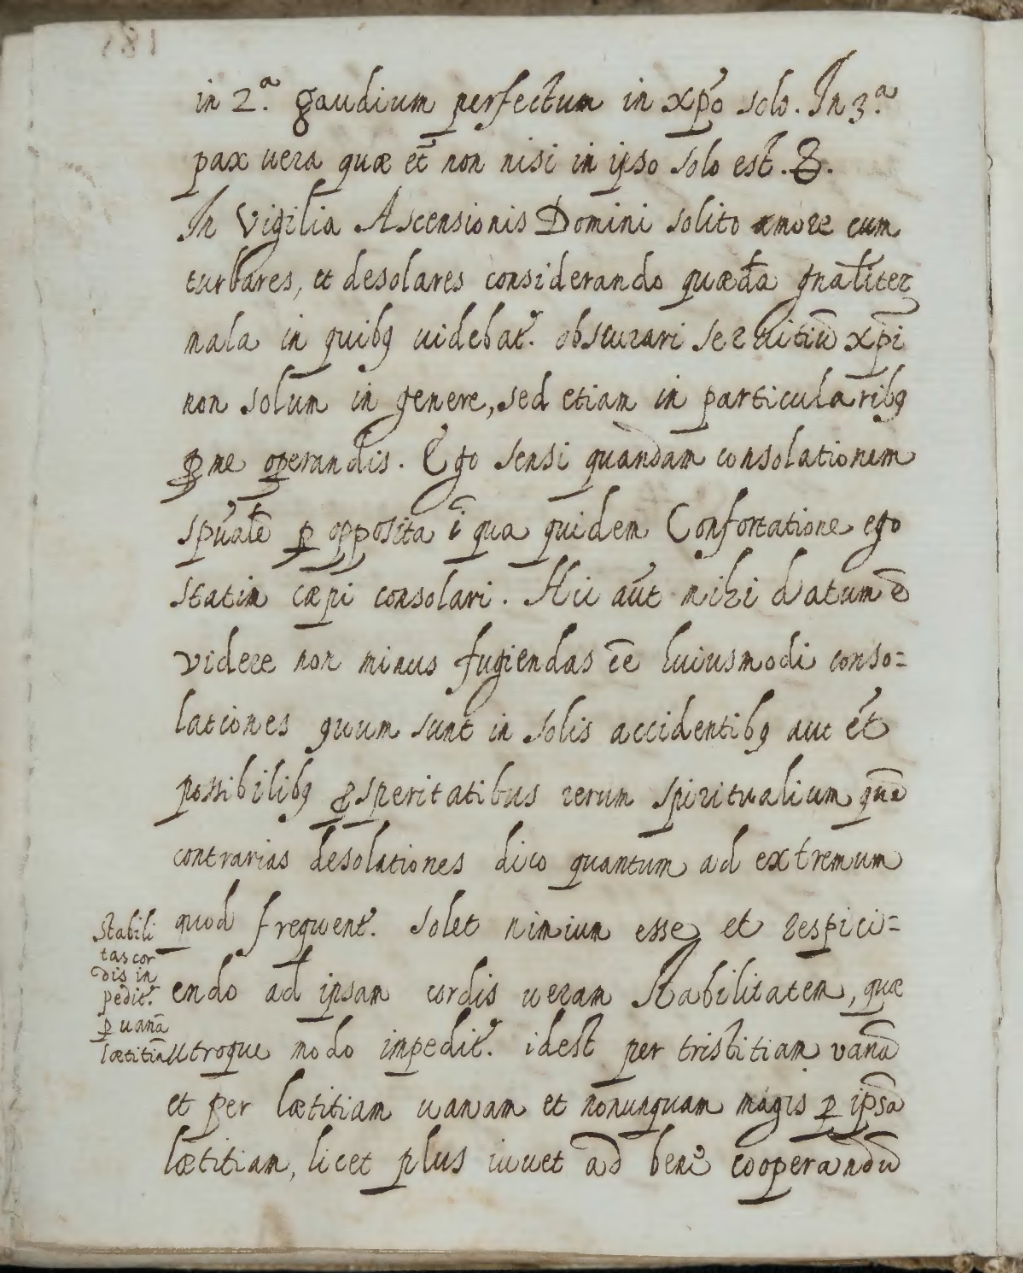 in 2.ª gaudium perfectum in xp̄o solo. In 3.ª
pax uera quæ et̄ non nisi in ipso solo est. &.
In Vigilia Ascensionis Domini solito more cum
turbares, et desolares considerando quædā gnāliter
mala in quibꝫ uidebat̃. obscurari seruitiū xp̄i
non solum in genere, sed etiam in particularibꝫ
ꝑ me oꝑandis. Ego sensi quandam consolationem
spūalē ꝑ opposita ī qua quidem Confortatione ego
statim cæpi consolari. Hic aūt mihi datum ē
videre non minus fugiendas eē huiusmodi conso=
lationes quum sunt in solis accidentibꝫ aut et̄
possibilibꝫ ꝓsperitatibus rerum spiritualium quā
contrarias desolationes dico quantum ad extremum
quod frequent̃. solet nimium esse, et respici=
endo ad ipsam cordis ueram stabilitatem, quæ
utroque modo impedit̃. idest per tristitiam vanā
et per lætitiam uanam et nonunquam magis ꝑ ipsā
lætitiam, licet plus iuuet ad benē cooperandū
Stabili
tas cor
dis in
pedit̃.
ꝑ uanā
lætitiā